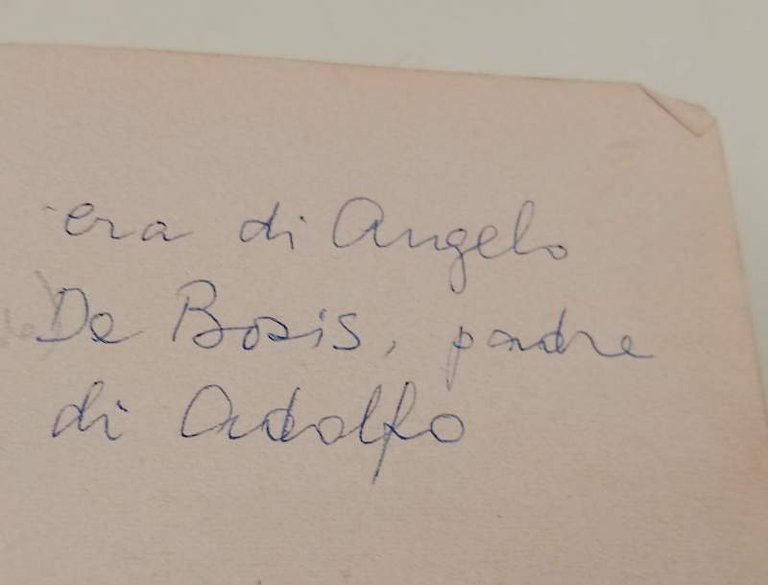 era di Angelo
De Bosis, padre
di Adolfo